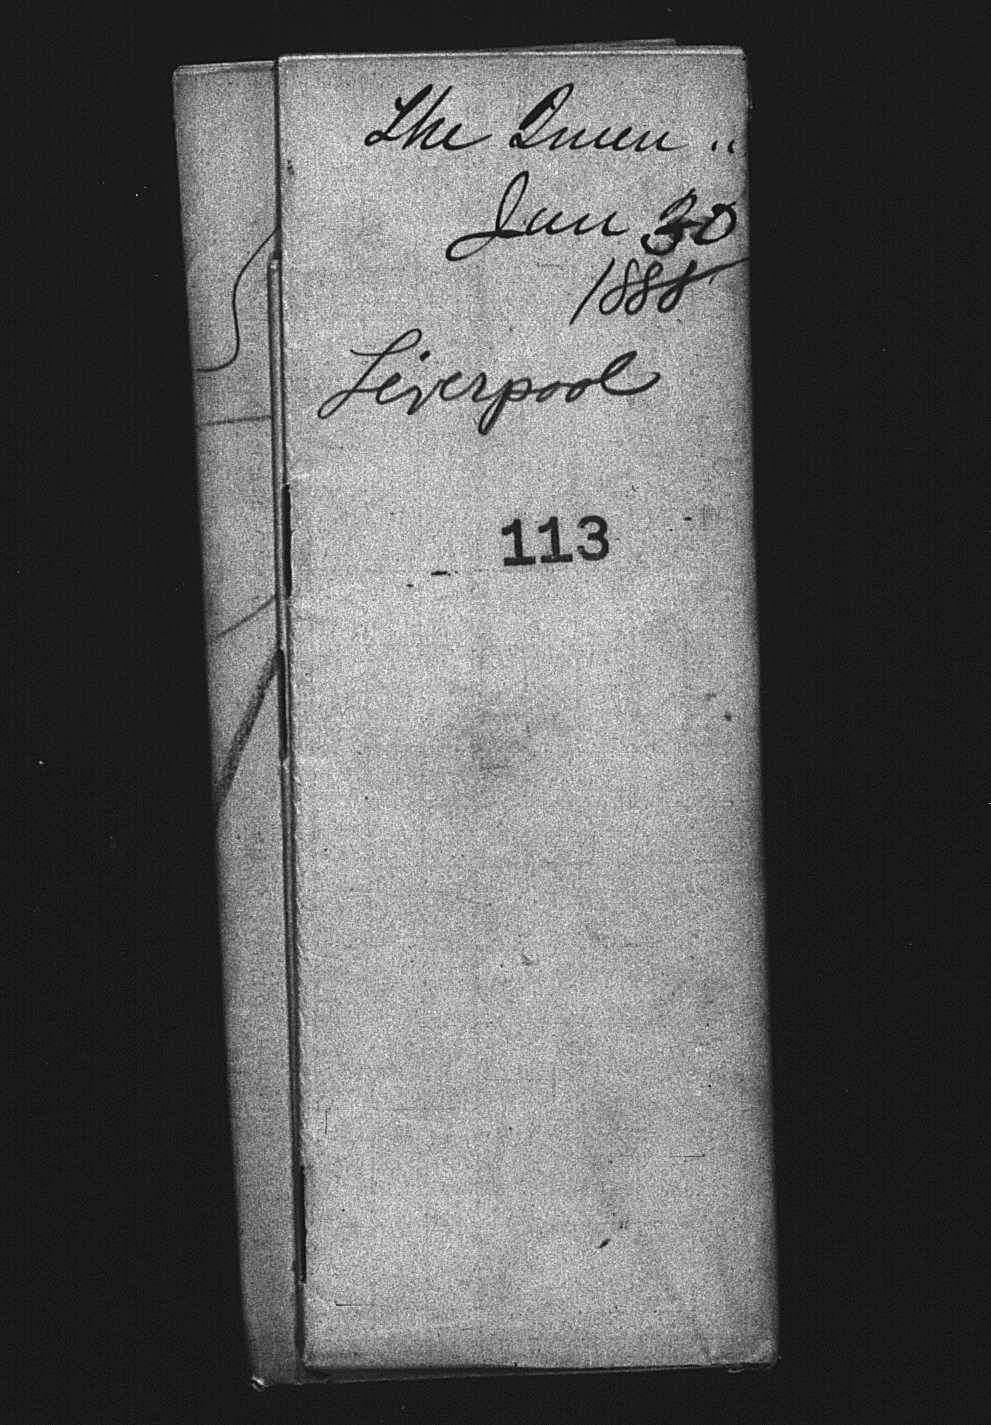 The Queen "
Jan 30
1888
Liverpool
113